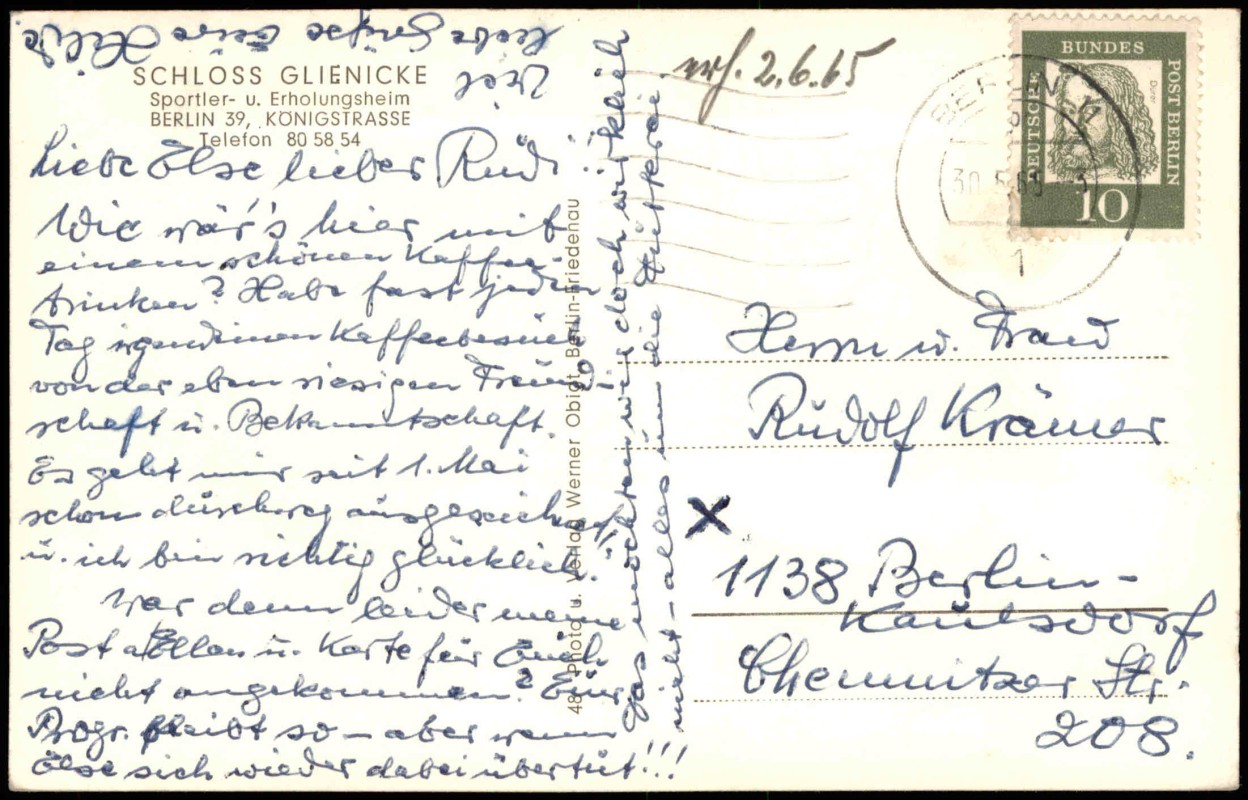 SCHLOSS GLIENICKE
Sportler- u. Erholungsheim
BERLIN 39, KÖNIGSTRASSE
Telefon 80 58 54
Liebe Else lieber Rudi!
Wie wär's hier mit
einem schönen Kaffee-
trinken? Habe fast jeden
Tag irgendeinen Kaffeebesuch
von der eben riesigen Freund-
schaft u. Bekanntschaft.
Es geht mir seit 1. Mai
schon durchweg ausgezeichnet
u. ich bin richtig glücklich.
War denn leider meine
Post a/Ellen u. Karte für Euch
nicht angekommen? Eur
Progr. bleibt so – aber wenn
Else sich wieder dabei übertut!!!
Das möchten wir doch wirklich
nicht – alles um die
Viel
liebe Grüße Eure Hilde
48 Photo u. Verlag Werner Obigt Berlin-Friedenau
2.6.65
DEUTSCHE
BUNDES
POST BERLIN
Dürer
10
BERLIN 11
30.5.65
1
Herrn u. Frau
Rudolf Krämer
X
1138 Berlin-
Kaulsdorf
Chemnitzer Str.
208.